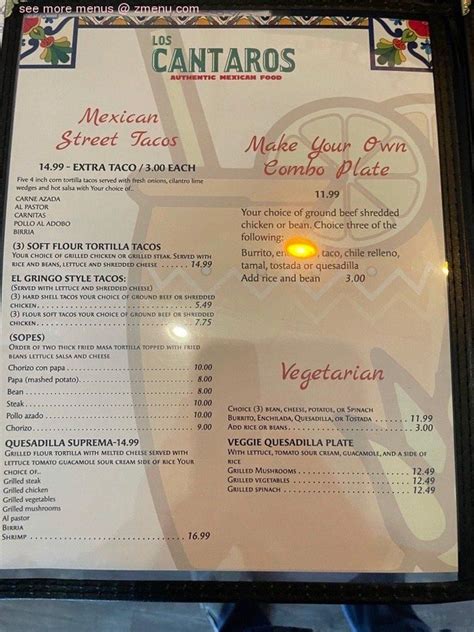 see more menus @ zmenu.com
LOS
CANTAROS
AUTHENTIC MEXICAN FOOD
Mexican
Street Tacos
14.99 - EXTRA TACO / 3.00 EACH
Five 4 inch corn tortilla tacos served with fresh onions, cilantro lime
wedges and hot salsa with Your choice of..
CARNE AZADA
AL PASTOR
CARNITAS
POLLO AL ADOBO
BIRRIA
(3) SOFT FLOUR TORTILLA TACOS
YOUR CHOICE OF GRILLED CHICKEN OR GRILLED STEAK. SERVED WITH
RICE AND BEANS, LETTUCE AND SHREDDED CHEESE ...... 14.99
EL GRINGO STYLE TACOS:
(SERVED WITH LETTUCE AND SHREDDED CHEESE)
(3) HARD SHELL TACOS YOUR CHOICE OF GROUND BEEF OR SHREDDED
CHICKEN........ 5.49
(3) FLOUR SOFT TACOS YOUR CHOICE OF GROUND BEEF OR SHREDDED
CHICKEN........ 7.75
(SOPES)
ORDER OF TWO THICK FRIED MASA TORTILLA TOPPED WITH FRIED
BEANS LETTUCE SALSA AND CHEESE
Chorizo con papa ........ 10.00
Papa (mashed potato)........ 8.00
Bean ........ 8.00
Steak ........ 10.00
Pollo azado ........ 10.00
Chorizo ........ 9.00
QUESADILLA SUPREMA-14.99
GRILLED FLOUR TORTILLA WITH MELTED CHEESE SERVED WITH
LETTUCE TOMATO GUACAMOLE SOUR CREAM SIDE OF RICE YOUR
CHOICE OF..
Grilled steak
Grilled chicken
Grilled vegetables
Grilled mushrooms
Al pastor
BIRRIA
SHRIMP ........ 16.99
Make Your Own
Combo Plate
11.99
Your choice of ground beef shredded
chicken or bean. Choice three of the
following:
Burrito, taco, chile relleno,
tamal, tostada or quesadilla
Add rice and bean 3.00
Vegetarian
CHOICE (3) BEAN, CHEESE, POTATOS, OR SPINACH
BURRITO, ENCHILADA, QUESADILLA, OR TOSTADA ....... 11.99
ADD RICE OR BEANS........ 3.00
VEGGIE QUESADILLA PLATE
WITH LETTUCE, TOMATO SOUR CREAM, GUACAMOLE, AND A SIDE OF
RICE
GRILLED MUSHROOMS........ 12.49
GRILLED VEGETABLES ........ 12.49
GRILLED SPINACH ........ 12.49